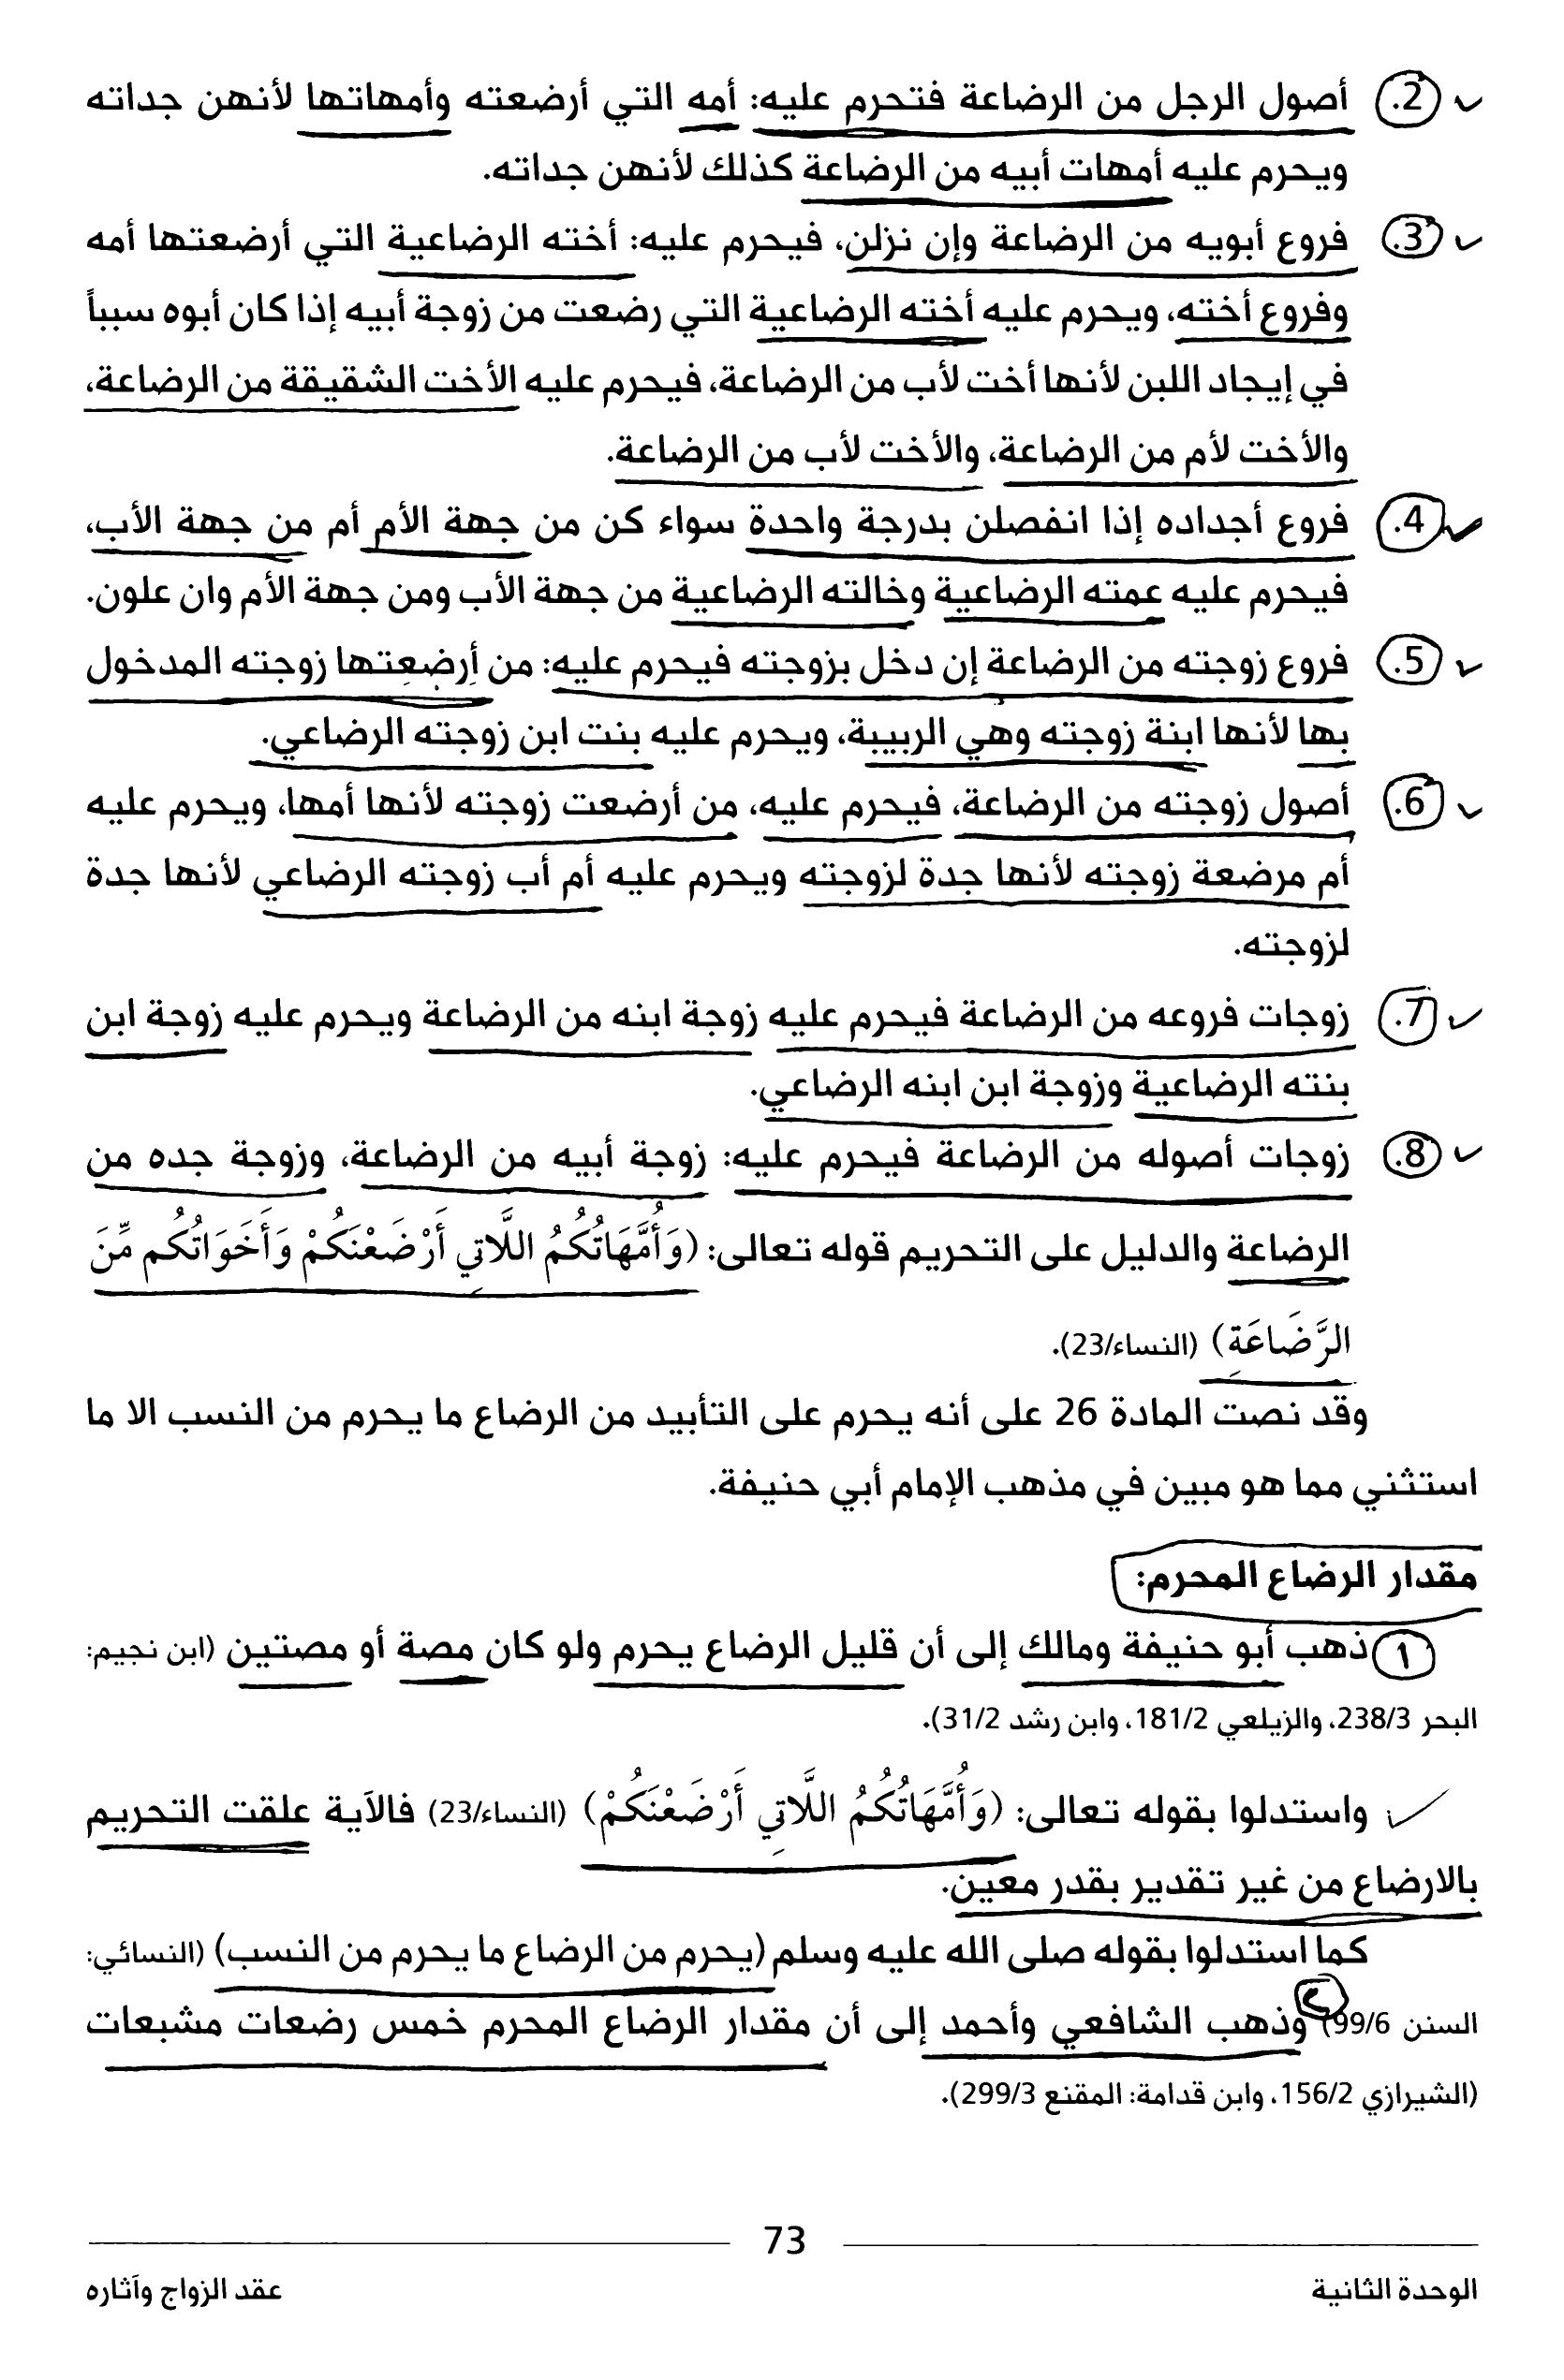 2. أصول الرجل من الرضاعة فتحرم عليه: أمه التي أرضعته وأمهاتها لأنهن جداته
ويحرم عليه أمهات أبيه من الرضاعة كذلك لأنهن جداته.
3. فروع أبويه من الرضاعة وإن نزلن، فيحرم عليه: أخته الرضاعية التي أرضعتها أمه
وفروع أخته، ويحرم عليه أخته الرضاعية التي رضعت من زوجة أبيه إذا كان أبوه سبباً
في إيجاد اللبن لأنها أخت لأب من الرضاعة، فيحرم عليه الأخت الشقيقة من الرضاعة،
والأخت لأم من الرضاعة، والأخت لأب من الرضاعة.
4. فروع أجداده إذا انفصلن بدرجة واحدة سواء كن من جهة الأم أم من جهة الأب،
فيحرم عليه عمته الرضاعية وخالته الرضاعية من جهة الأب ومن جهة الأم وان علون.
5. فروع زوجته من الرضاعة إن دخل بزوجته فيحرم عليه: من أرضعتها زوجته المدخول
بها لأنها ابنة زوجته وهي الربيبة، ويحرم عليه بنت ابن زوجته الرضاعي.
6. أصول زوجته من الرضاعة، فيحرم عليه، من أرضعت زوجته لأنها أمها، ويحرم عليه
أم مرضعة زوجته لأنها جدة لزوجته ويحرم عليه أم أب زوجته الرضاعي لأنها جدة
لزوجته.
7. زوجات فروعه من الرضاعة فيحرم عليه زوجة ابنه من الرضاعة ويحرم عليه زوجة ابن
بنته الرضاعية وزوجة ابن ابنه الرضاعي.
8. زوجات أصوله من الرضاعة فيحرم عليه: زوجة أبيه من الرضاعة، وزوجة جده من
الرضاعة والدليل على التحريم قوله تعالى: (وَأُمَّهَاتُكُمُ اللَّاتِي أَرْضَعْنَكُمْ وَأَخَوَاتُكُم مِّنَ
الرَّضَاعَةِ) (النساء/23).
وقد نصت المادة 26 على أنه يحرم على التأبيد من الرضاع ما يحرم من النسب الا ما
استثني مما هو مبين في مذهب الإمام أبي حنيفة.
مقدار الرضاع المحرم:
١ ذهب أبو حنيفة ومالك إلى أن قليل الرضاع يحرم ولو كان مصة أو مصتين (ابن نجيم:
البحر 238/3، والزيلعي 181/2، وابن رشد 31/2).
واستدلوا بقوله تعالى: (وَأُمَّهَاتُكُمُ اللَّاتِي أَرْضَعْنَكُمْ) (النساء/23) فالآية علقت التحريم
بالارضاع من غير تقدير بقدر معين.
كما استدلوا بقوله صلى الله عليه وسلم (يحرم من الرضاع ما يحرم من النسب) (النسائي:
السنن 99/6) ٢ وذهب الشافعي وأحمد إلى أن مقدار الرضاع المحرم خمس رضعات مشبعات
(الشيرازي 156/2، وابن قدامة: المقنع 299/3).
73
الوحدة الثانية
عقد الزواج وآثاره